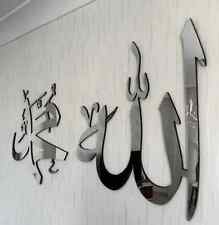 الله محمد